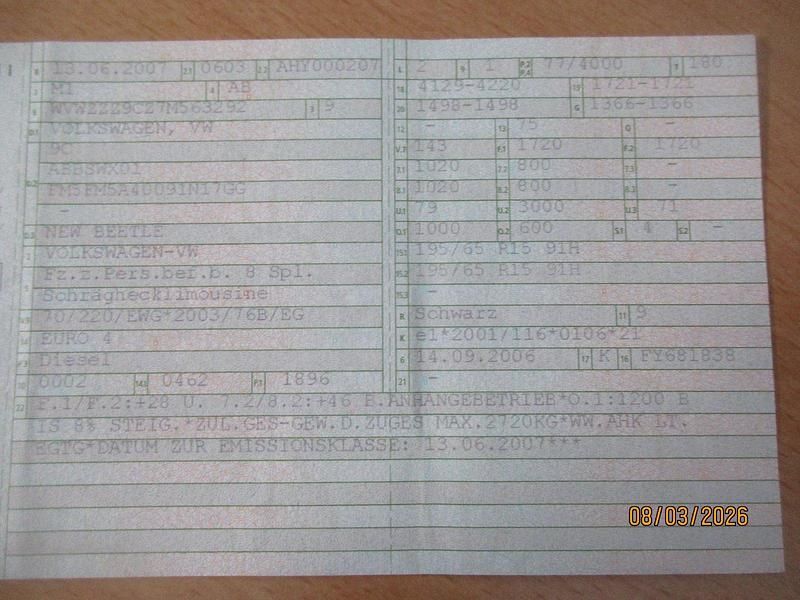 B 13.06.2007 2.1 0603 2.2 AHY000207
J M1 4 AB
E WVWZZZ9CZ7M563292 3 9
D.1 VOLKSWAGEN, VW
9C
D.2 ABBSWX01
FM5FM5A40091N17GG
-
D.3 NEW BEETLE
2 VOLKSWAGEN-VW
5 Fz.z.Pers.bef.b. 8 Spl.
Schräghecklimousine
70/220/EWG*2003/76B/EG
14 EURO 4
P.3 Diesel
10 0002 14.1 0462 P.1 1896
L 2 9 1 P.2 P.4 77/4000 T 180
18 4129-4220 19 1721-1721
20 1498-1498 G 1366-1366
12 - 13 75 Q -
V.7 143 F.1 1720 F.2 1720
7.1 1020 7.2 800 7.3 -
8.1 1020 8.2 800 8.3 -
U.1 79 U.2 3000 U.3 71
O.1 1000 O.2 600 S.1 4 S.2 -
15.1 195/65 R15 91H
15.2 195/65 R15 91H
15.3 -
R Schwarz 11 9
K e1*2001/116*0106*21
6 14.09.2006 17 K 16 FY681838
21 -
22 F.1/F.2:+28 U. 7.2/8.2:+46 B.ANHÄNGEBETRIEB*O.1:1200 B
IS 8% STEIG.*ZUL.GES-GEW.D.ZUGES MAX.2720KG*WW.AHK LT.
EGTG*DATUM ZUR EMISSIONSKLASSE: 13.06.2007***
08/03/2026